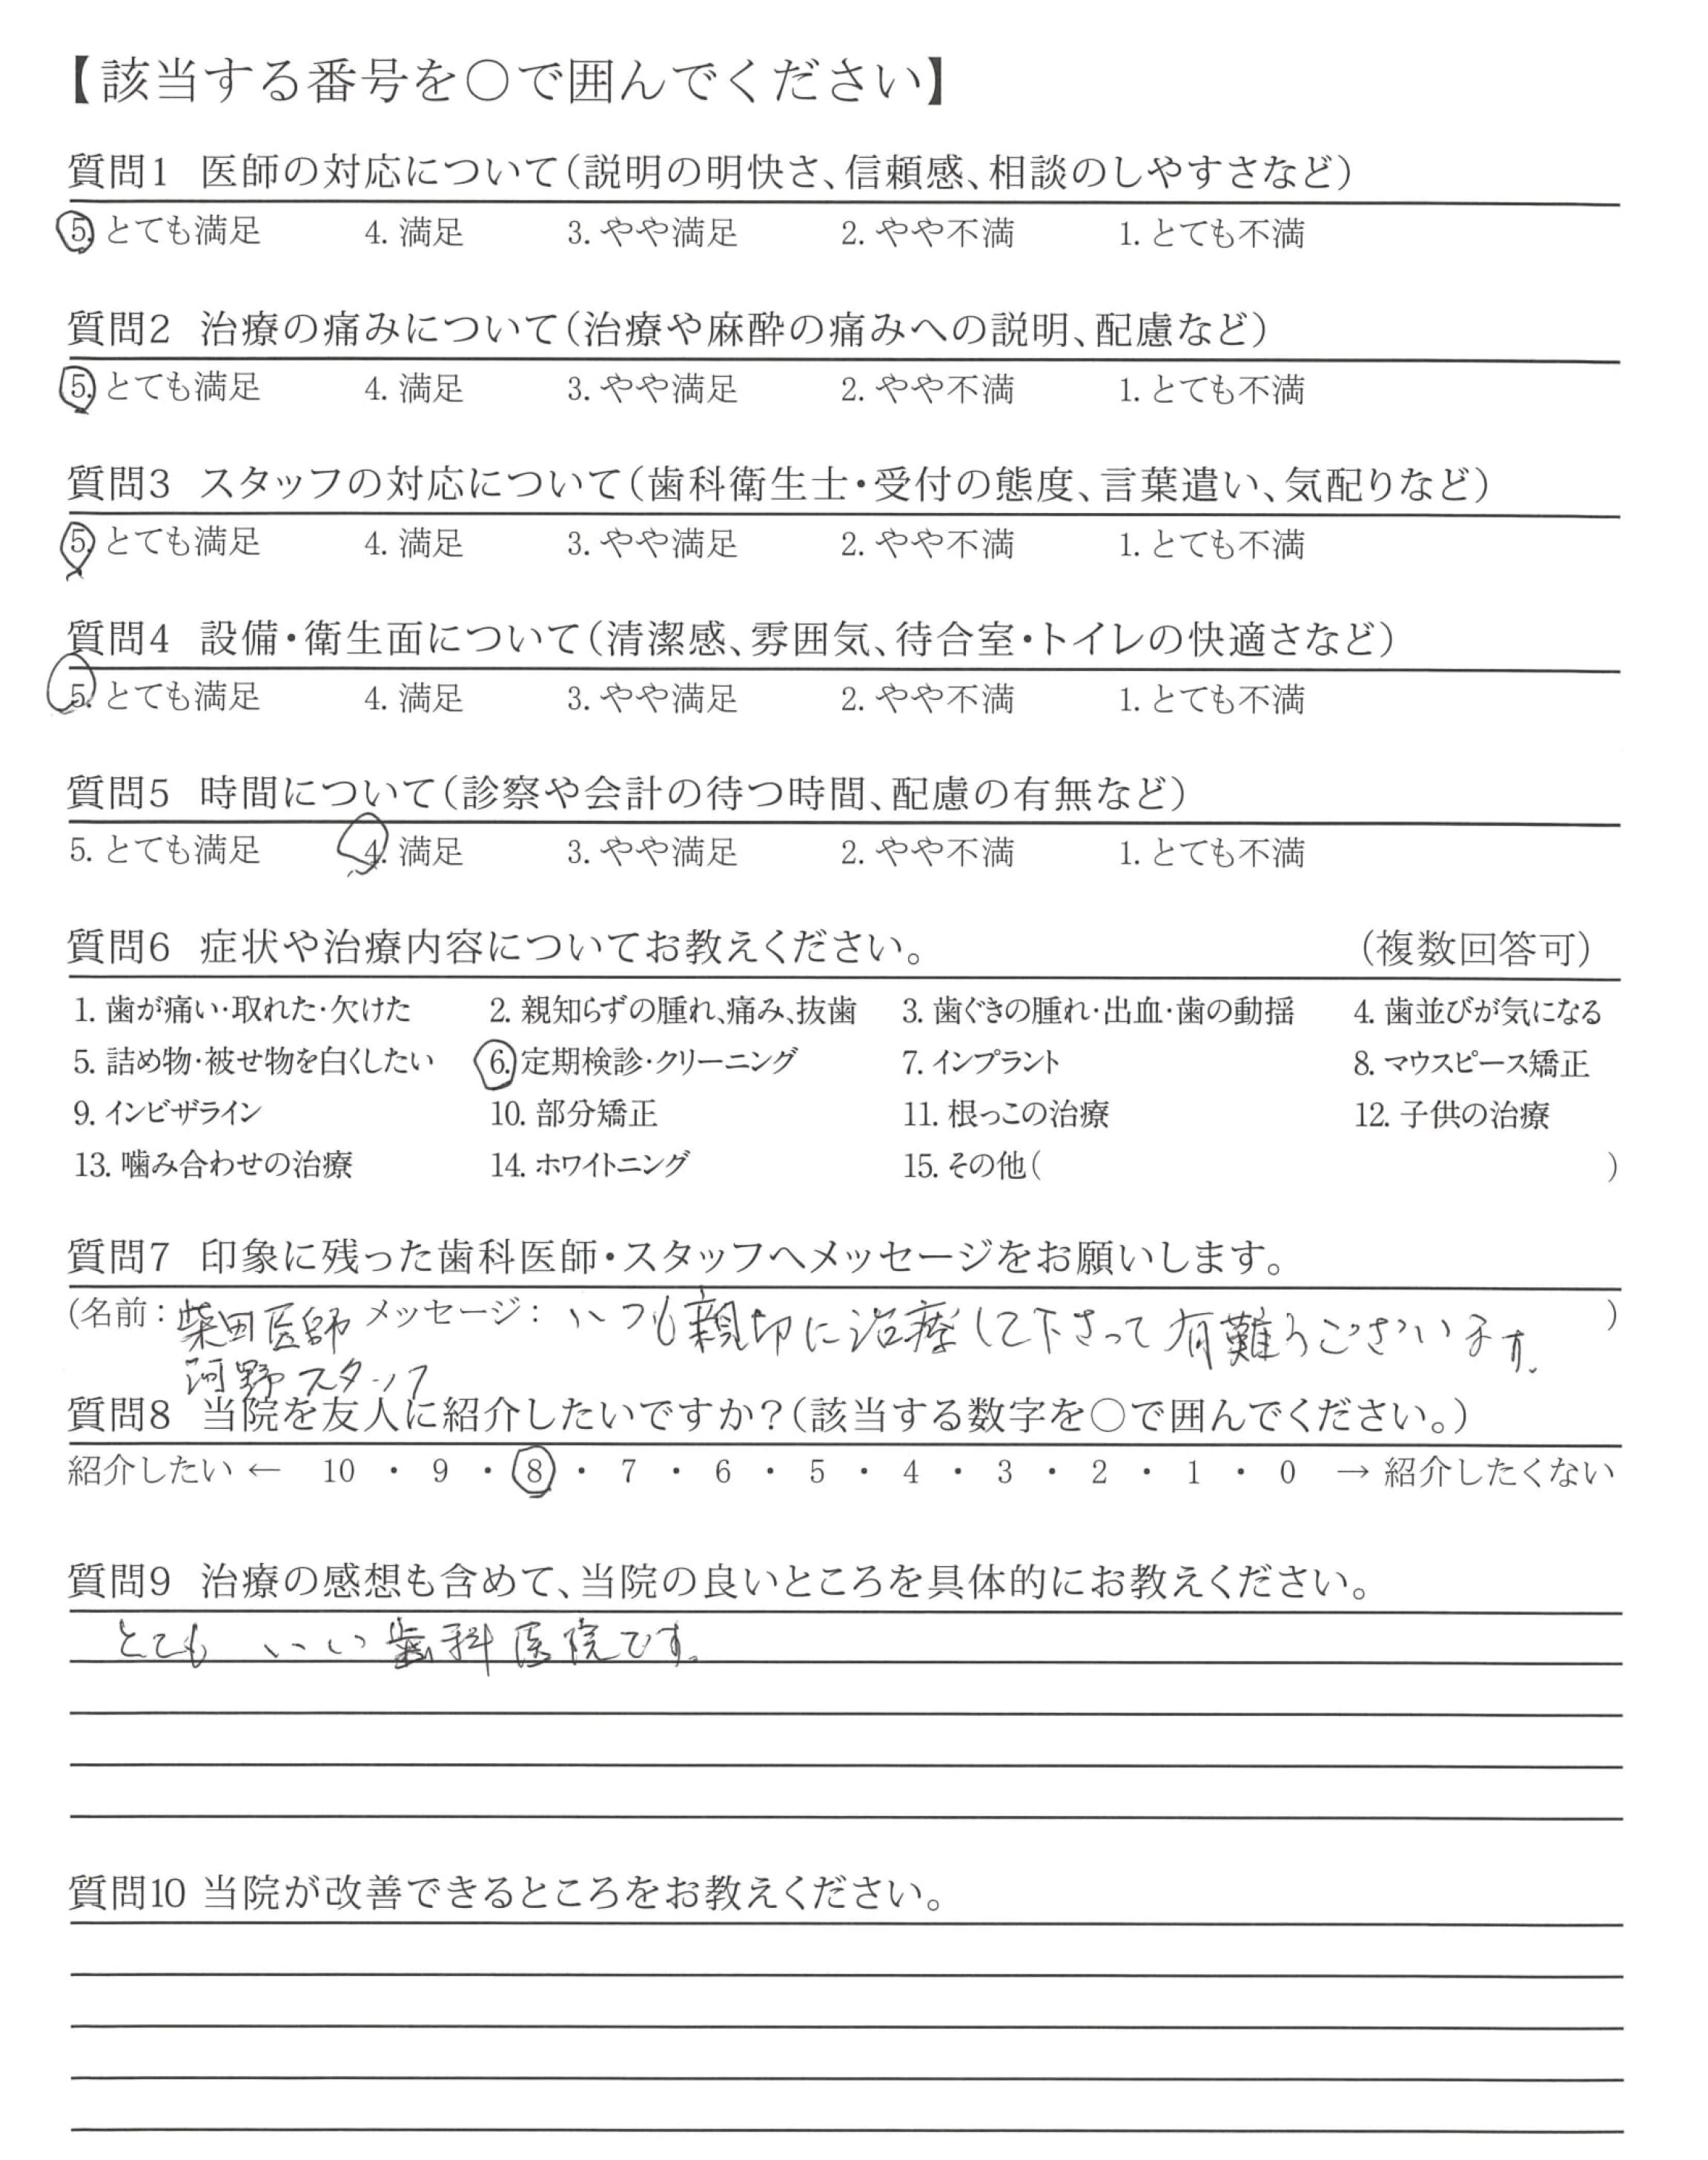 【該当する番号を○で囲んでください】
質問1 医師の対応について(説明の明快さ、信頼感、相談のしやすさなど)
5. とても満足 4. 満足 3. やや満足 2. やや不満 1. とても不満
質問2 治療の痛みについて(治療や麻酔の痛みへの説明、配慮など)
5. とても満足 4. 満足 3. やや満足 2. やや不満 1. とても不満
質問3 スタッフの対応について(歯科衛生士・受付の態度、言葉遣い、気配りなど)
5. とても満足 4. 満足 3. やや満足 2. やや不満 1. とても不満
質問4 設備・衛生面について(清潔感、雰囲気、待合室・トイレの快適さなど)
5. とても満足 4. 満足 3. やや満足 2. やや不満 1. とても不満
質問5 時間について(診察や会計の待つ時間、配慮の有無など)
5. とても満足 4. 満足 3. やや満足 2. やや不満 1. とても不満
質問6 症状や治療内容についてお教えください。 (複数回答可)
1. 歯が痛い・取れた・欠けた 2. 親知らずの腫れ、痛み、抜歯 3. 歯ぐきの腫れ・出血・歯の動揺 4. 歯並びが気になる
5. 詰め物・被せ物を白くしたい 6. 定期検診・クリーニング 7. インプラント 8. マウスピース矯正
9. インビザライン 10. 部分矯正 11. 根っこの治療 12. 子供の治療
13. 噛み合わせの治療 14. ホワイトニング 15. その他( )
質問7 印象に残った歯科医師・スタッフへメッセージをお願いします。
(名前: 柴田医師 メッセージ: いつも親切に治療して下さって有難うございます。 )
河野スタッフ
質問8 当院を友人に紹介したいですか?(該当する数字を○で囲んでください。)
紹介したい ← 10 ・ 9 ・ 8 ・ 7 ・ 6 ・ 5 ・ 4 ・ 3 ・ 2 ・ 1 ・ 0 → 紹介したくない
質問9 治療の感想も含めて、当院の良いところを具体的にお教えください。
とても いい歯科医院です。
質問10 当院が改善できるところをお教えください。